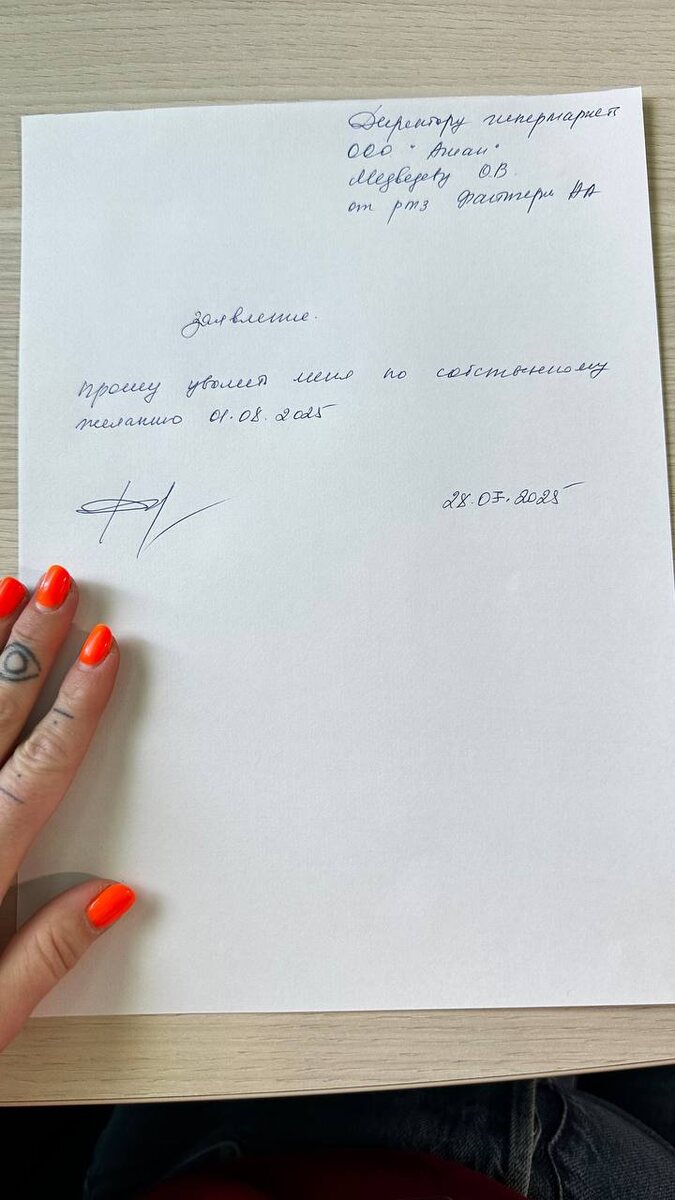 Директору гипермаркет
ООО "Ашан"
Медведеву О.В.
от ртз НА
заявление.
прошу уволит меня по собственному
желанию 01.08.2025
28.07.2025